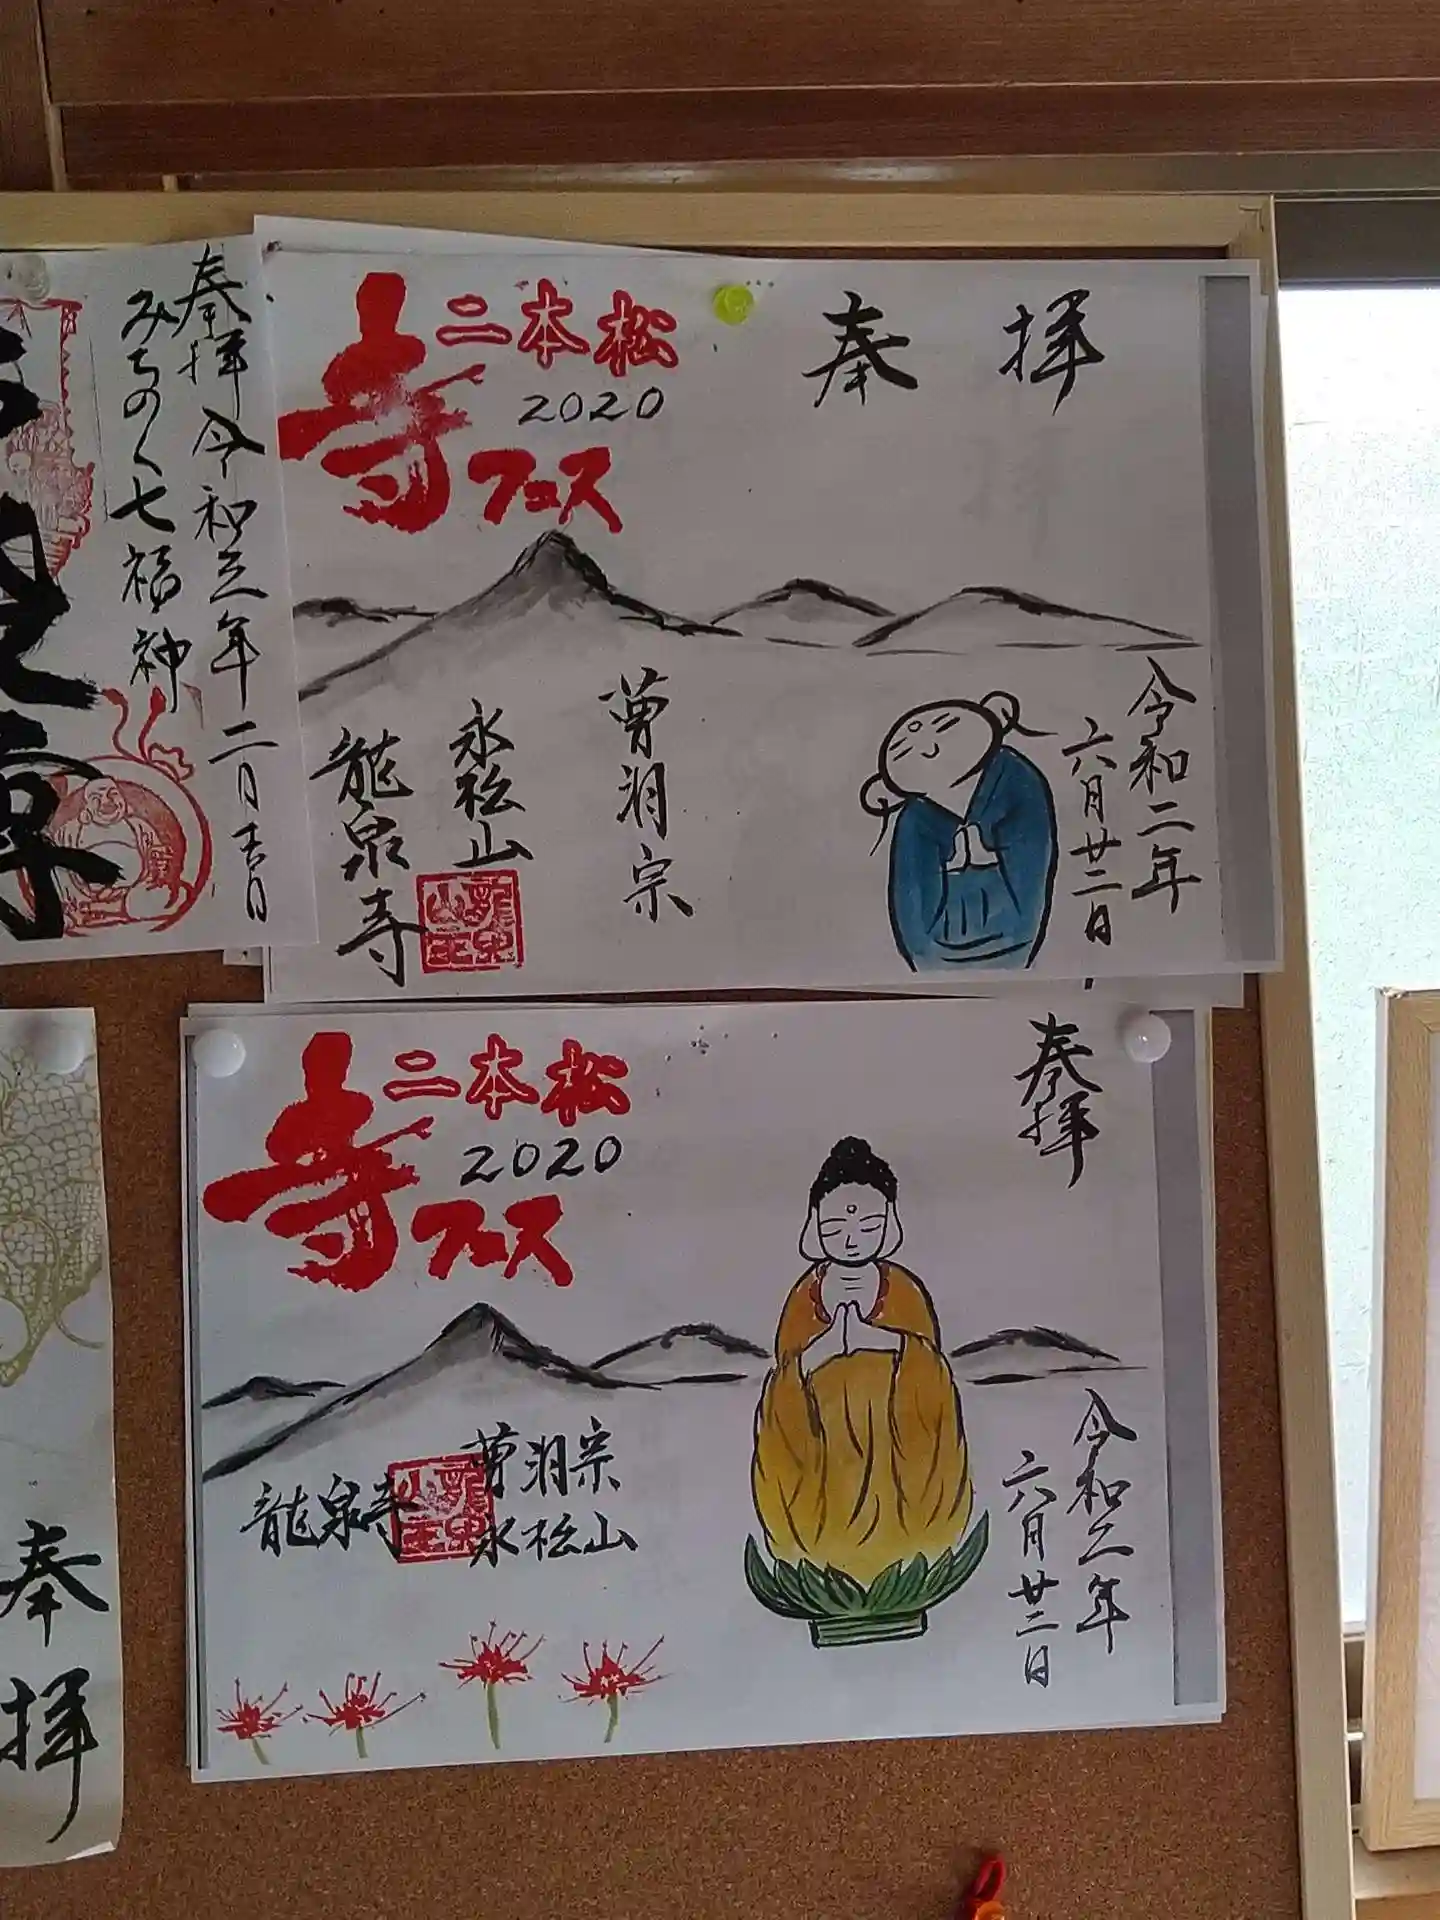 奉拝
令和三年二月吉日
みちのく七福神
二本松
2020
寺フェス
奉拝
令和二年
六月廿二日
曹洞宗
永松山
龍泉寺
二本松
2020
寺フェス
奉拝
令和二年
六月廿二日
曹洞宗
永松山
龍泉寺
奉拝